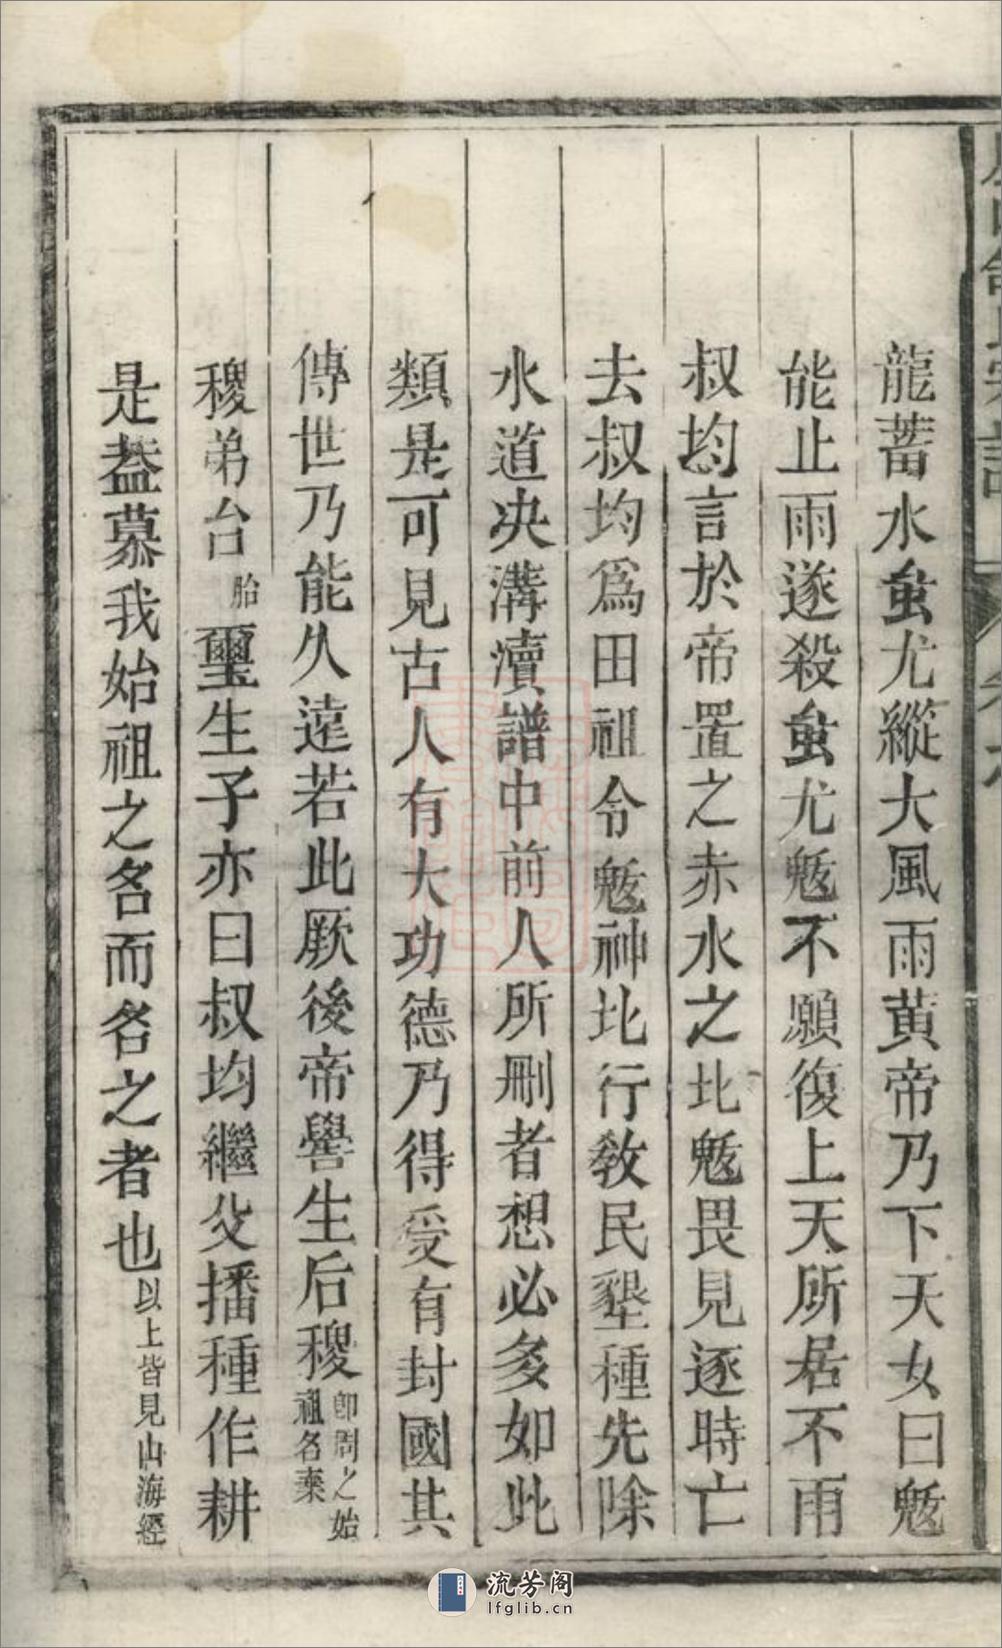 龍蓄水蚩尤縱大風雨黄帝乃下天女曰魃
能止雨遂殺蚩尤魃不願復上天所居不雨
叔均言於帝置之赤水之北魃畏見逐時亡
去叔均爲田祖令魃神北行教民墾種先除
水道决溝瀆譜中前人所刪者想必多如此
類是可見古人有大功德乃得受有封國其
傳世乃能久遠若此厥後帝嚳生后稷卽周之始祖名棄
稷弟台胎璽生子亦曰叔均繼父播種作耕
是葢慕我始祖之名而名之者也以上皆見山海經
流芳阁
lfglib.cn